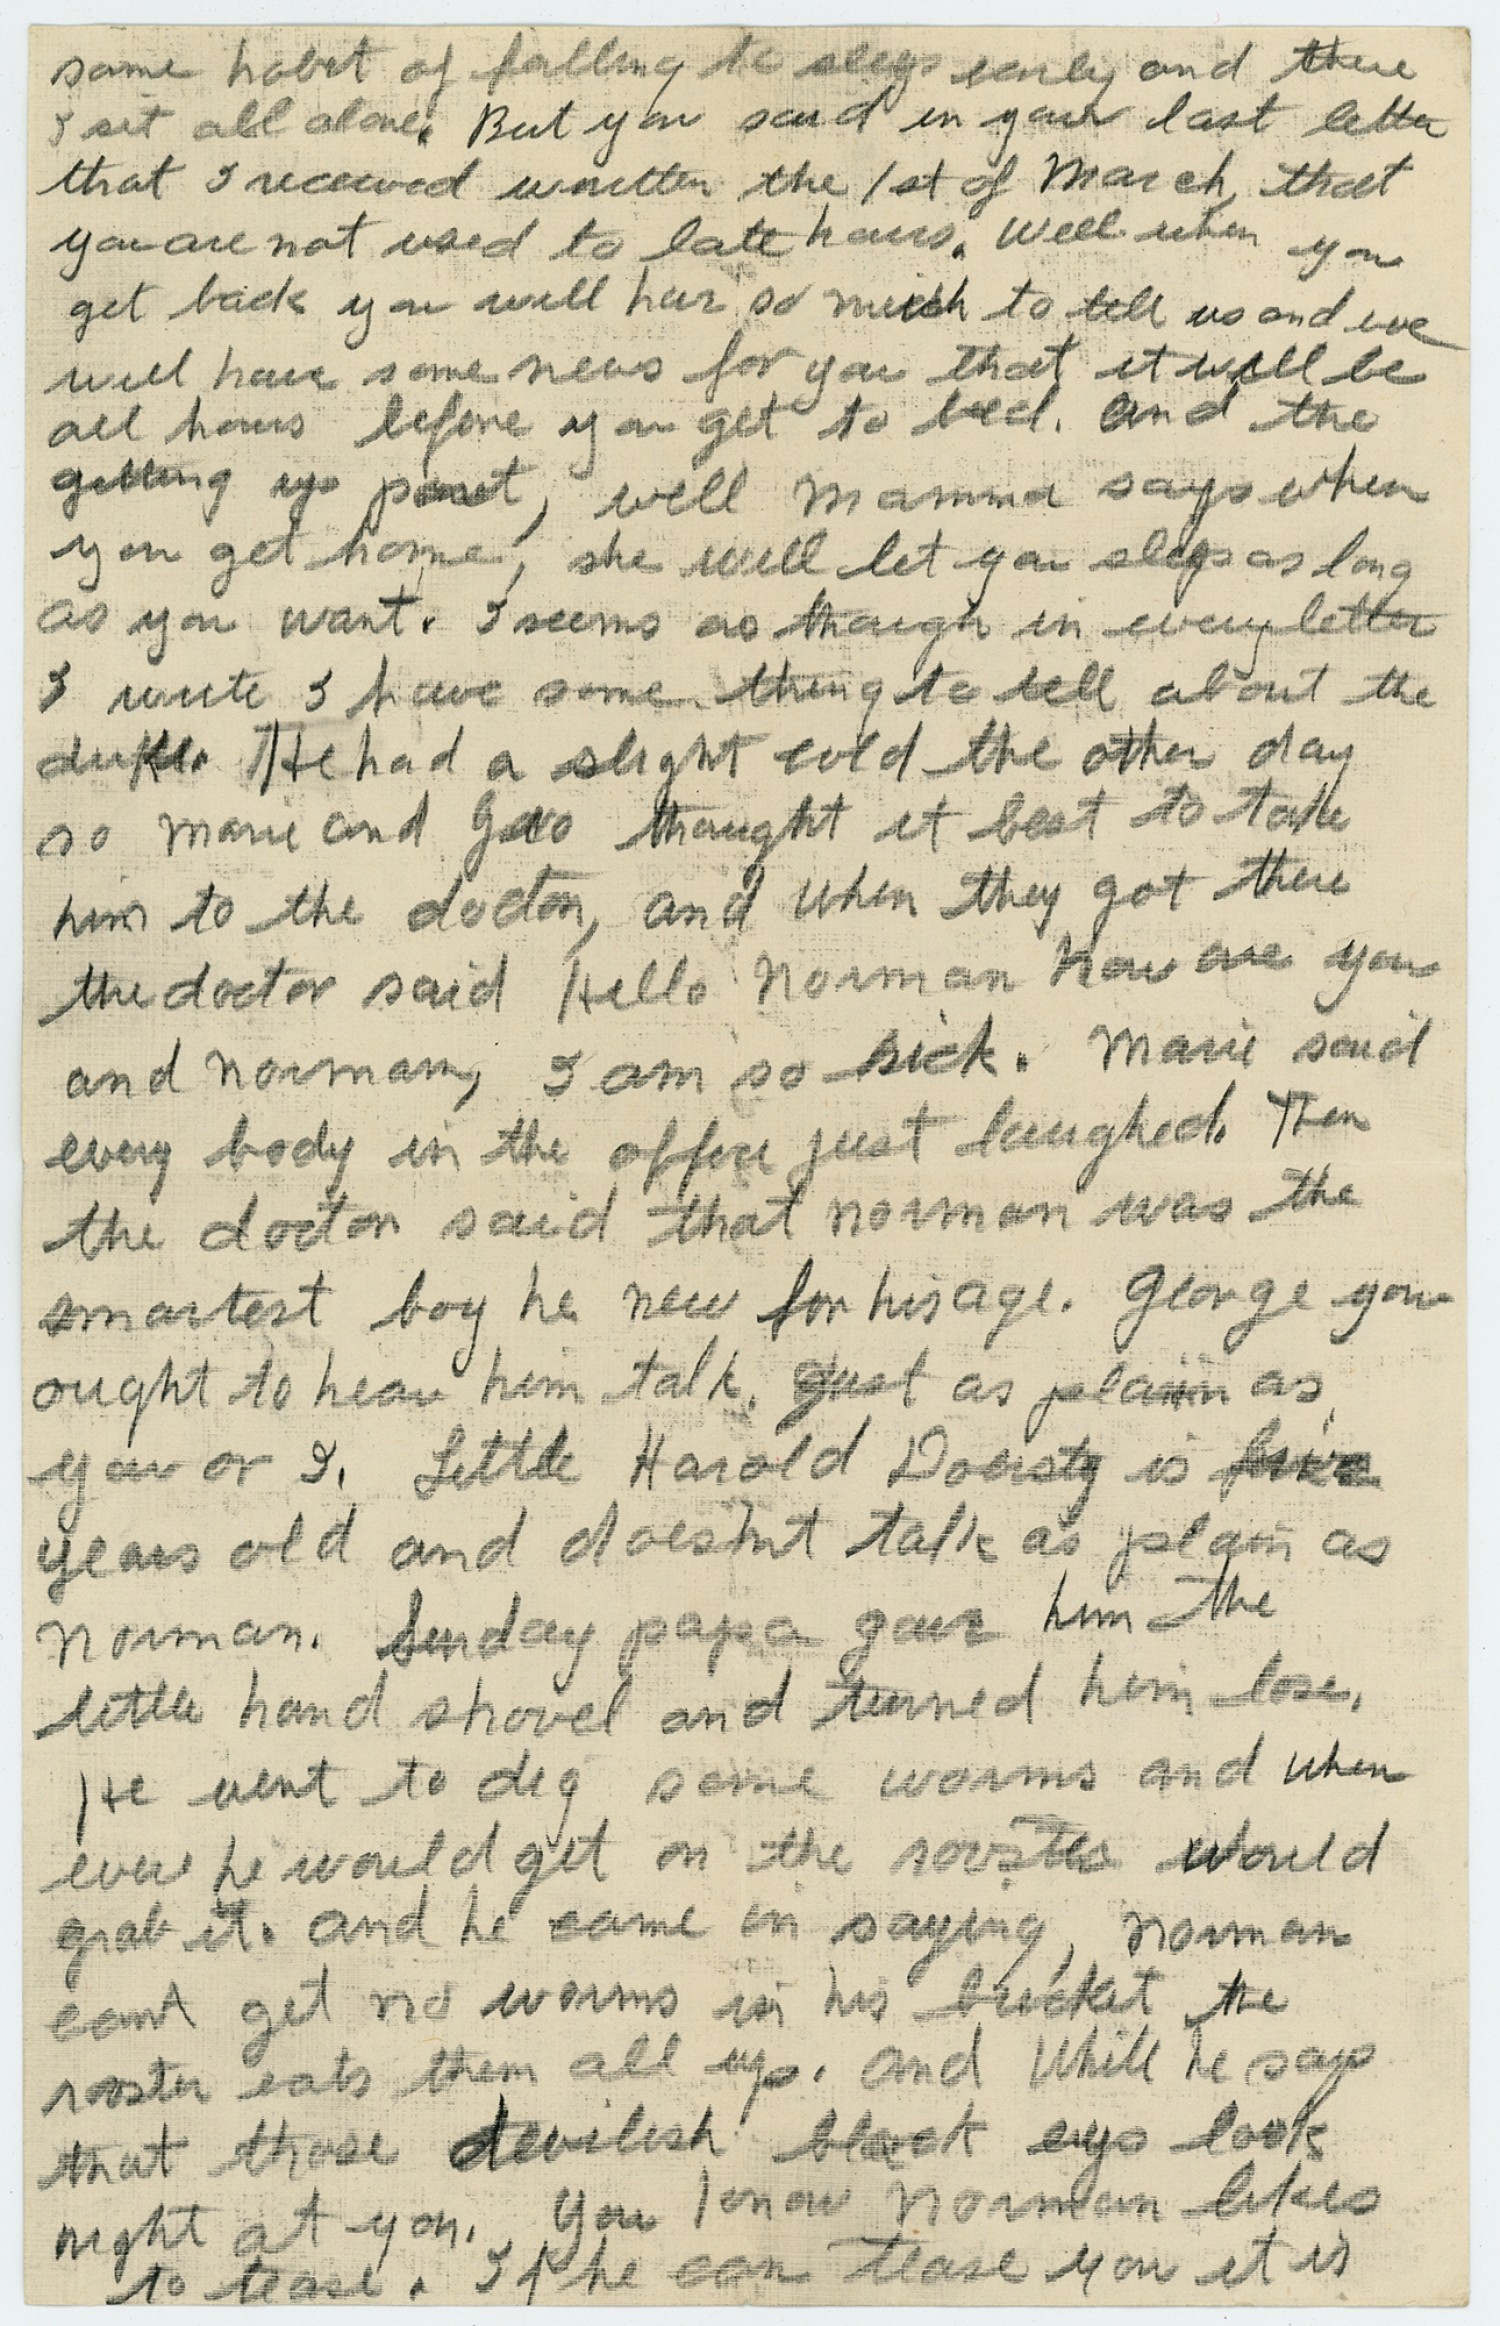 same habit of falling to sleep early and there
I sit all alone. But you said in your last letter
that I received written the 1st of March, that
you are not used to late hours. Well when you
get back you will have so much to tell us and we
will have some news for you that it will be
all hours before you get to bed. And the
getting up part, well Mamma says when
you get home, she will let you sleep as long
as you want. I seems as though in every letter
I write I have some thing to tell about the
duke. He had a slight cold the other day
so Marie and Geo thought it best to take
him to the doctor, and when they got there
the doctor said Hello Norman how are you
and Norman, I am so sick. Marie said
every body in the office just laughed. Then
the doctor said that Norman was the
smartest boy he new for his age. George you
ought to hear him talk. Just as plain as
you or I. Little Harold is five
years old and doesn't talk as plain as
Norman. Sunday papa gave him the
little hand shovel and turned him lose.
He went to dig some worms and when
ever he would get on the rooster would
grab it. And he came in saying, Norman
can't get no worms in his bucket the
rooster eats them all up. And while he says
that those devilish black eyes look
right at you. You know Norman likes
to tease. If he can tease you it is